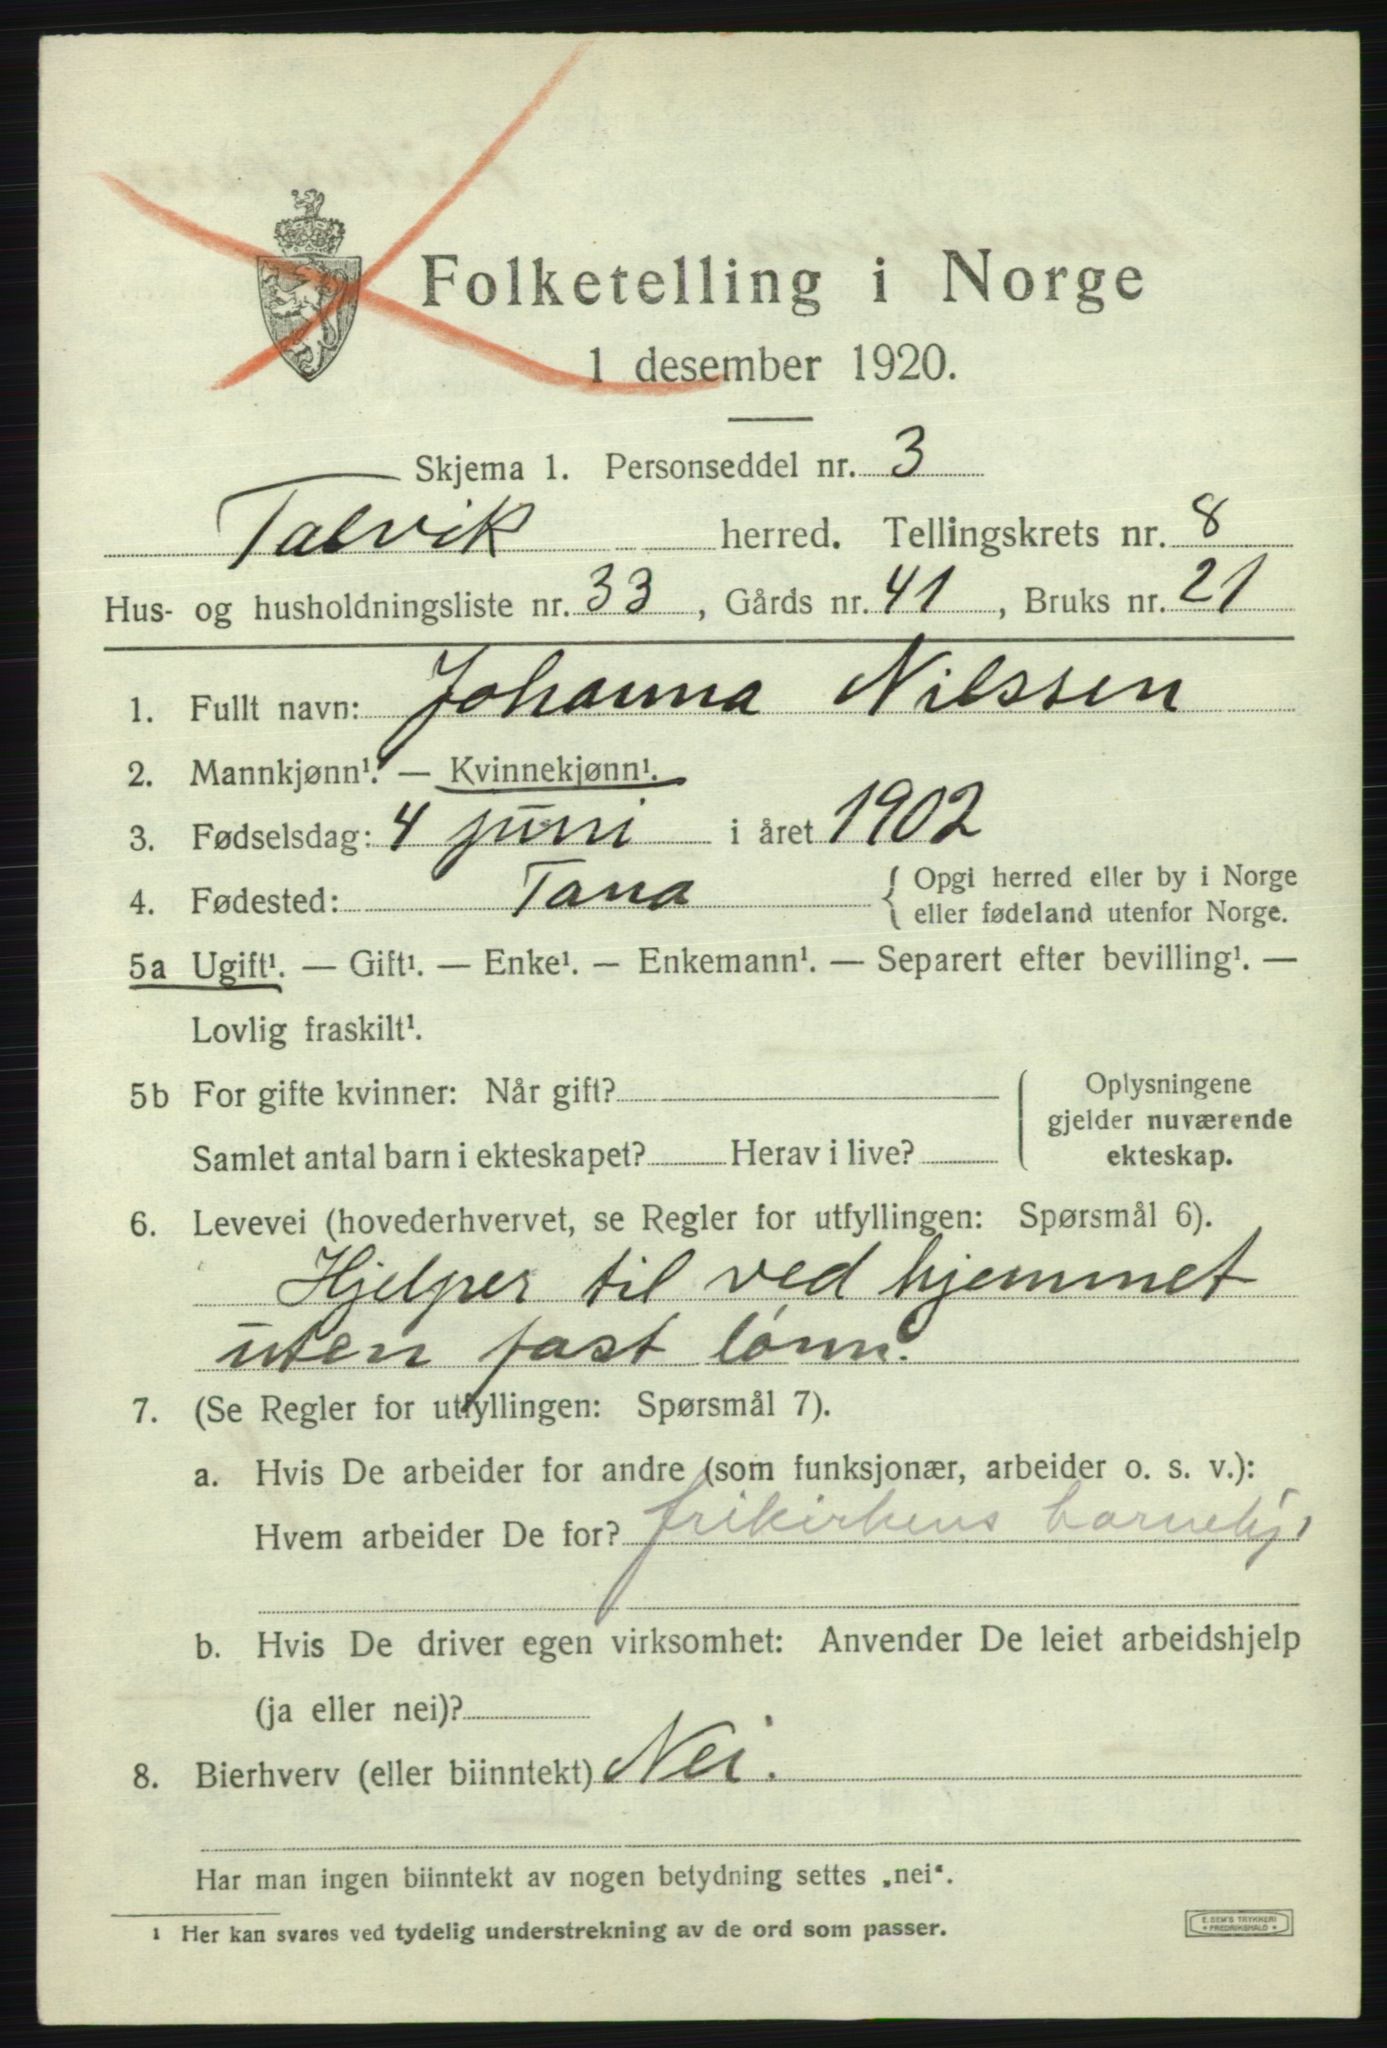 Folketelling i Norge
1 desember 1920.
Skjema 1. Personseddel nr. 3
Talvik herred. Tellingskrets nr. 8
Hus- og husholdningsliste nr. 33, Gårds nr. 41, Bruks nr. 21
1. Fullt navn: Johanna Nilssen
2. Mannkjønn¹. — Kvinnekjønn¹.
3. Fødselsdag: 4 juni i året 1902
4. Fødested: Tana { Opgi herred eller by i Norge
eller fødeland utenfor Norge.
5a Ugift¹. — Gift¹. — Enke¹. — Enkemann¹. — Separert efter bevilling¹. —
Lovlig fraskilt¹.
5b For gifte kvinner: Når gift?
Samlet antal barn i ekteskapet? Herav i live?
Oplysningene
gjelder nuværende
ekteskap.
6. Levevei (hovederhvervet, se Regler for utfyllingen: Spørsmål 6).
Hjelper til ved hjemmet
uten fast lønn.
7. (Se Regler for utfyllingen: Spørsmål 7).
a. Hvis De arbeider for andre (som funksjonær, arbeider o. s. v.):
Hvem arbeider De for? frikirkens barnehj
b. Hvis De driver egen virksomhet: Anvender De leiet arbeidshjelp
(ja eller nei)?
8. Bierhverv (eller biinntekt) Nei.
Har man ingen biinntekt av nogen betydning settes „nei“.
¹ Her kan svares ved tydelig understrekning av de ord som passer.
E. SEM'S TRYKKERI
FREDRIKSHALD